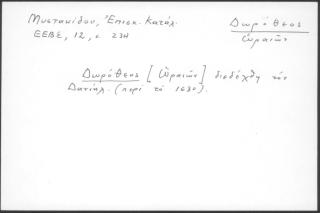 Μυστακίδου, Ἐπισκ. Κατάλ.
ΕΕΒΣ, 12, σ 234
Δωρόθεος
Ὠραιῶν
Δωρόθεος [Ὠραιῶν] διεδέχθη τὸν
Δανιήλ. (περὶ τὸ 1630).